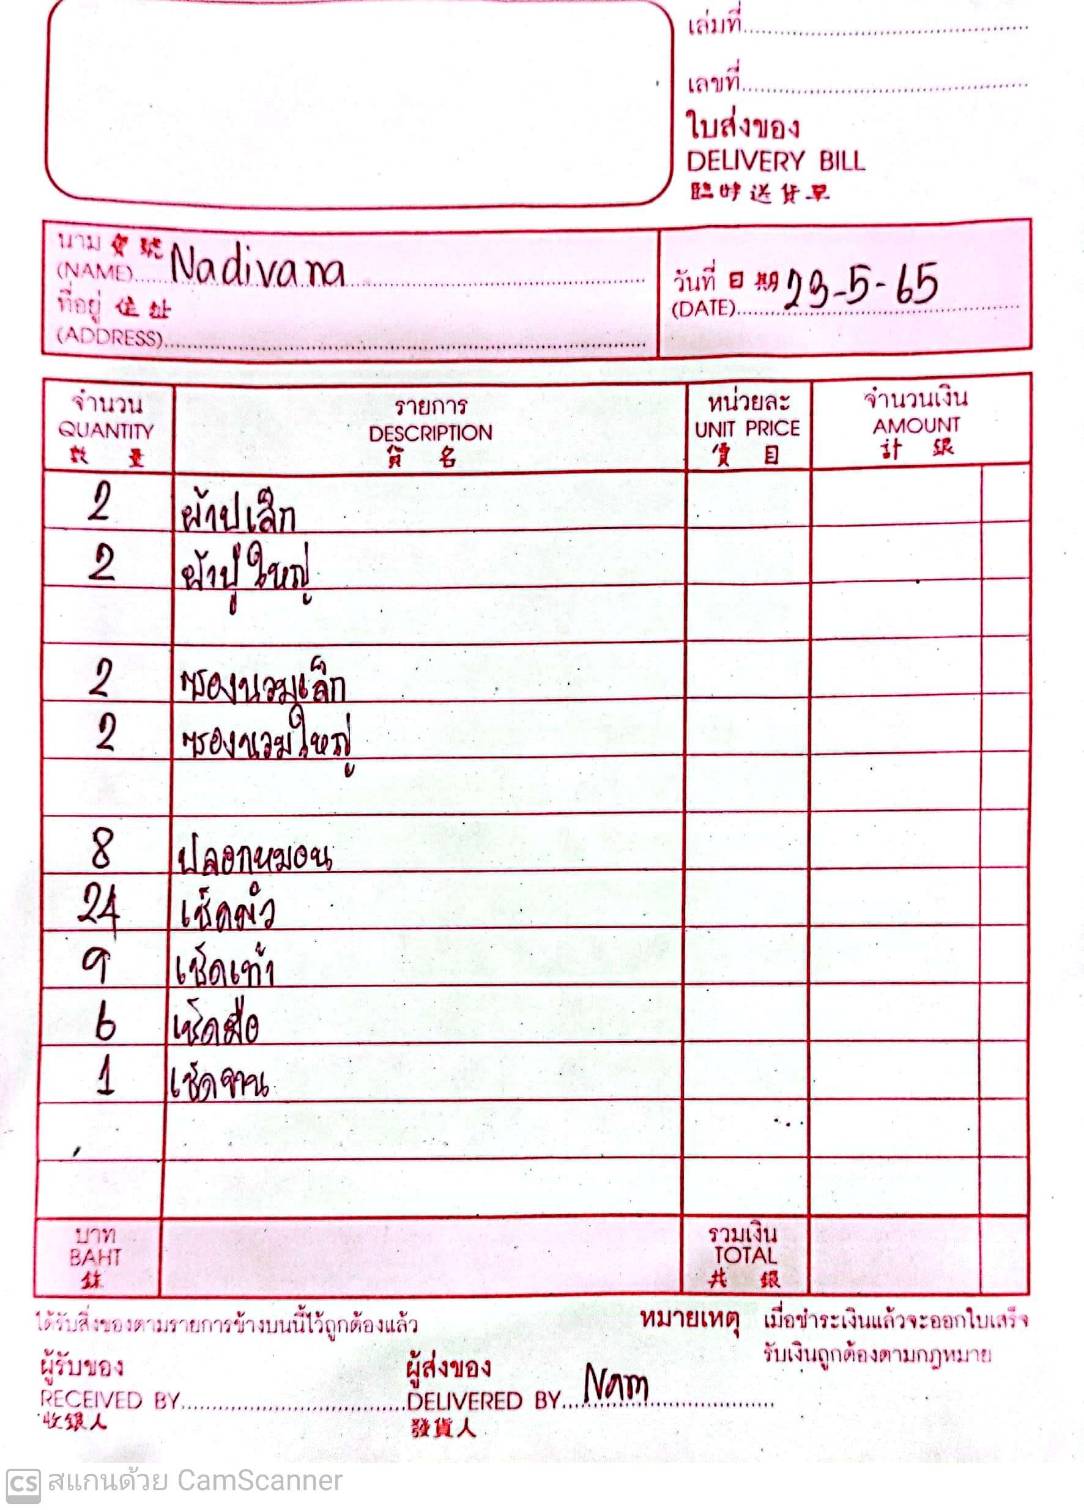 เล่มที่
เลขที่
ใบส่งของ
DELIVERY BILL
臨時送貨單
นาม 寶號 Nadivana
(NAME)
ที่อยู่ 住址
(ADDRESS)
วันที่ 日期 23-5-65
(DATE)
จำนวน รายการ หน่วยละ จำนวนเงิน
QUANTITY DESCRIPTION UNIT PRICE AMOUNT
數量 貨名 價目 計銀
2 ผ้าปูเล็ก
2 ผ้าปูใหญ่
2 รองนวมเล็ก
2 รองนวมใหญ่
8 ปลอกหมอน
24 เช็ดตัว
9 เช็ดเท้า
6 เช็ดมือ
1 เช็ดจาน
บาท รวมเงิน
BAHT TOTAL
銖 共銀
ได้รับสิ่งของตามรายการข้างบนนี้ไว้ถูกต้องแล้ว หมายเหตุ เมื่อชำระเงินแล้วจะออกใบเสร็จ
รับเงินถูกต้องตามกฎหมาย
ผู้รับของ ผู้ส่งของ
RECEIVED BY DELIVERED BY Nam
收銀人 發貨人
CS สแกนด้วย CamScanner